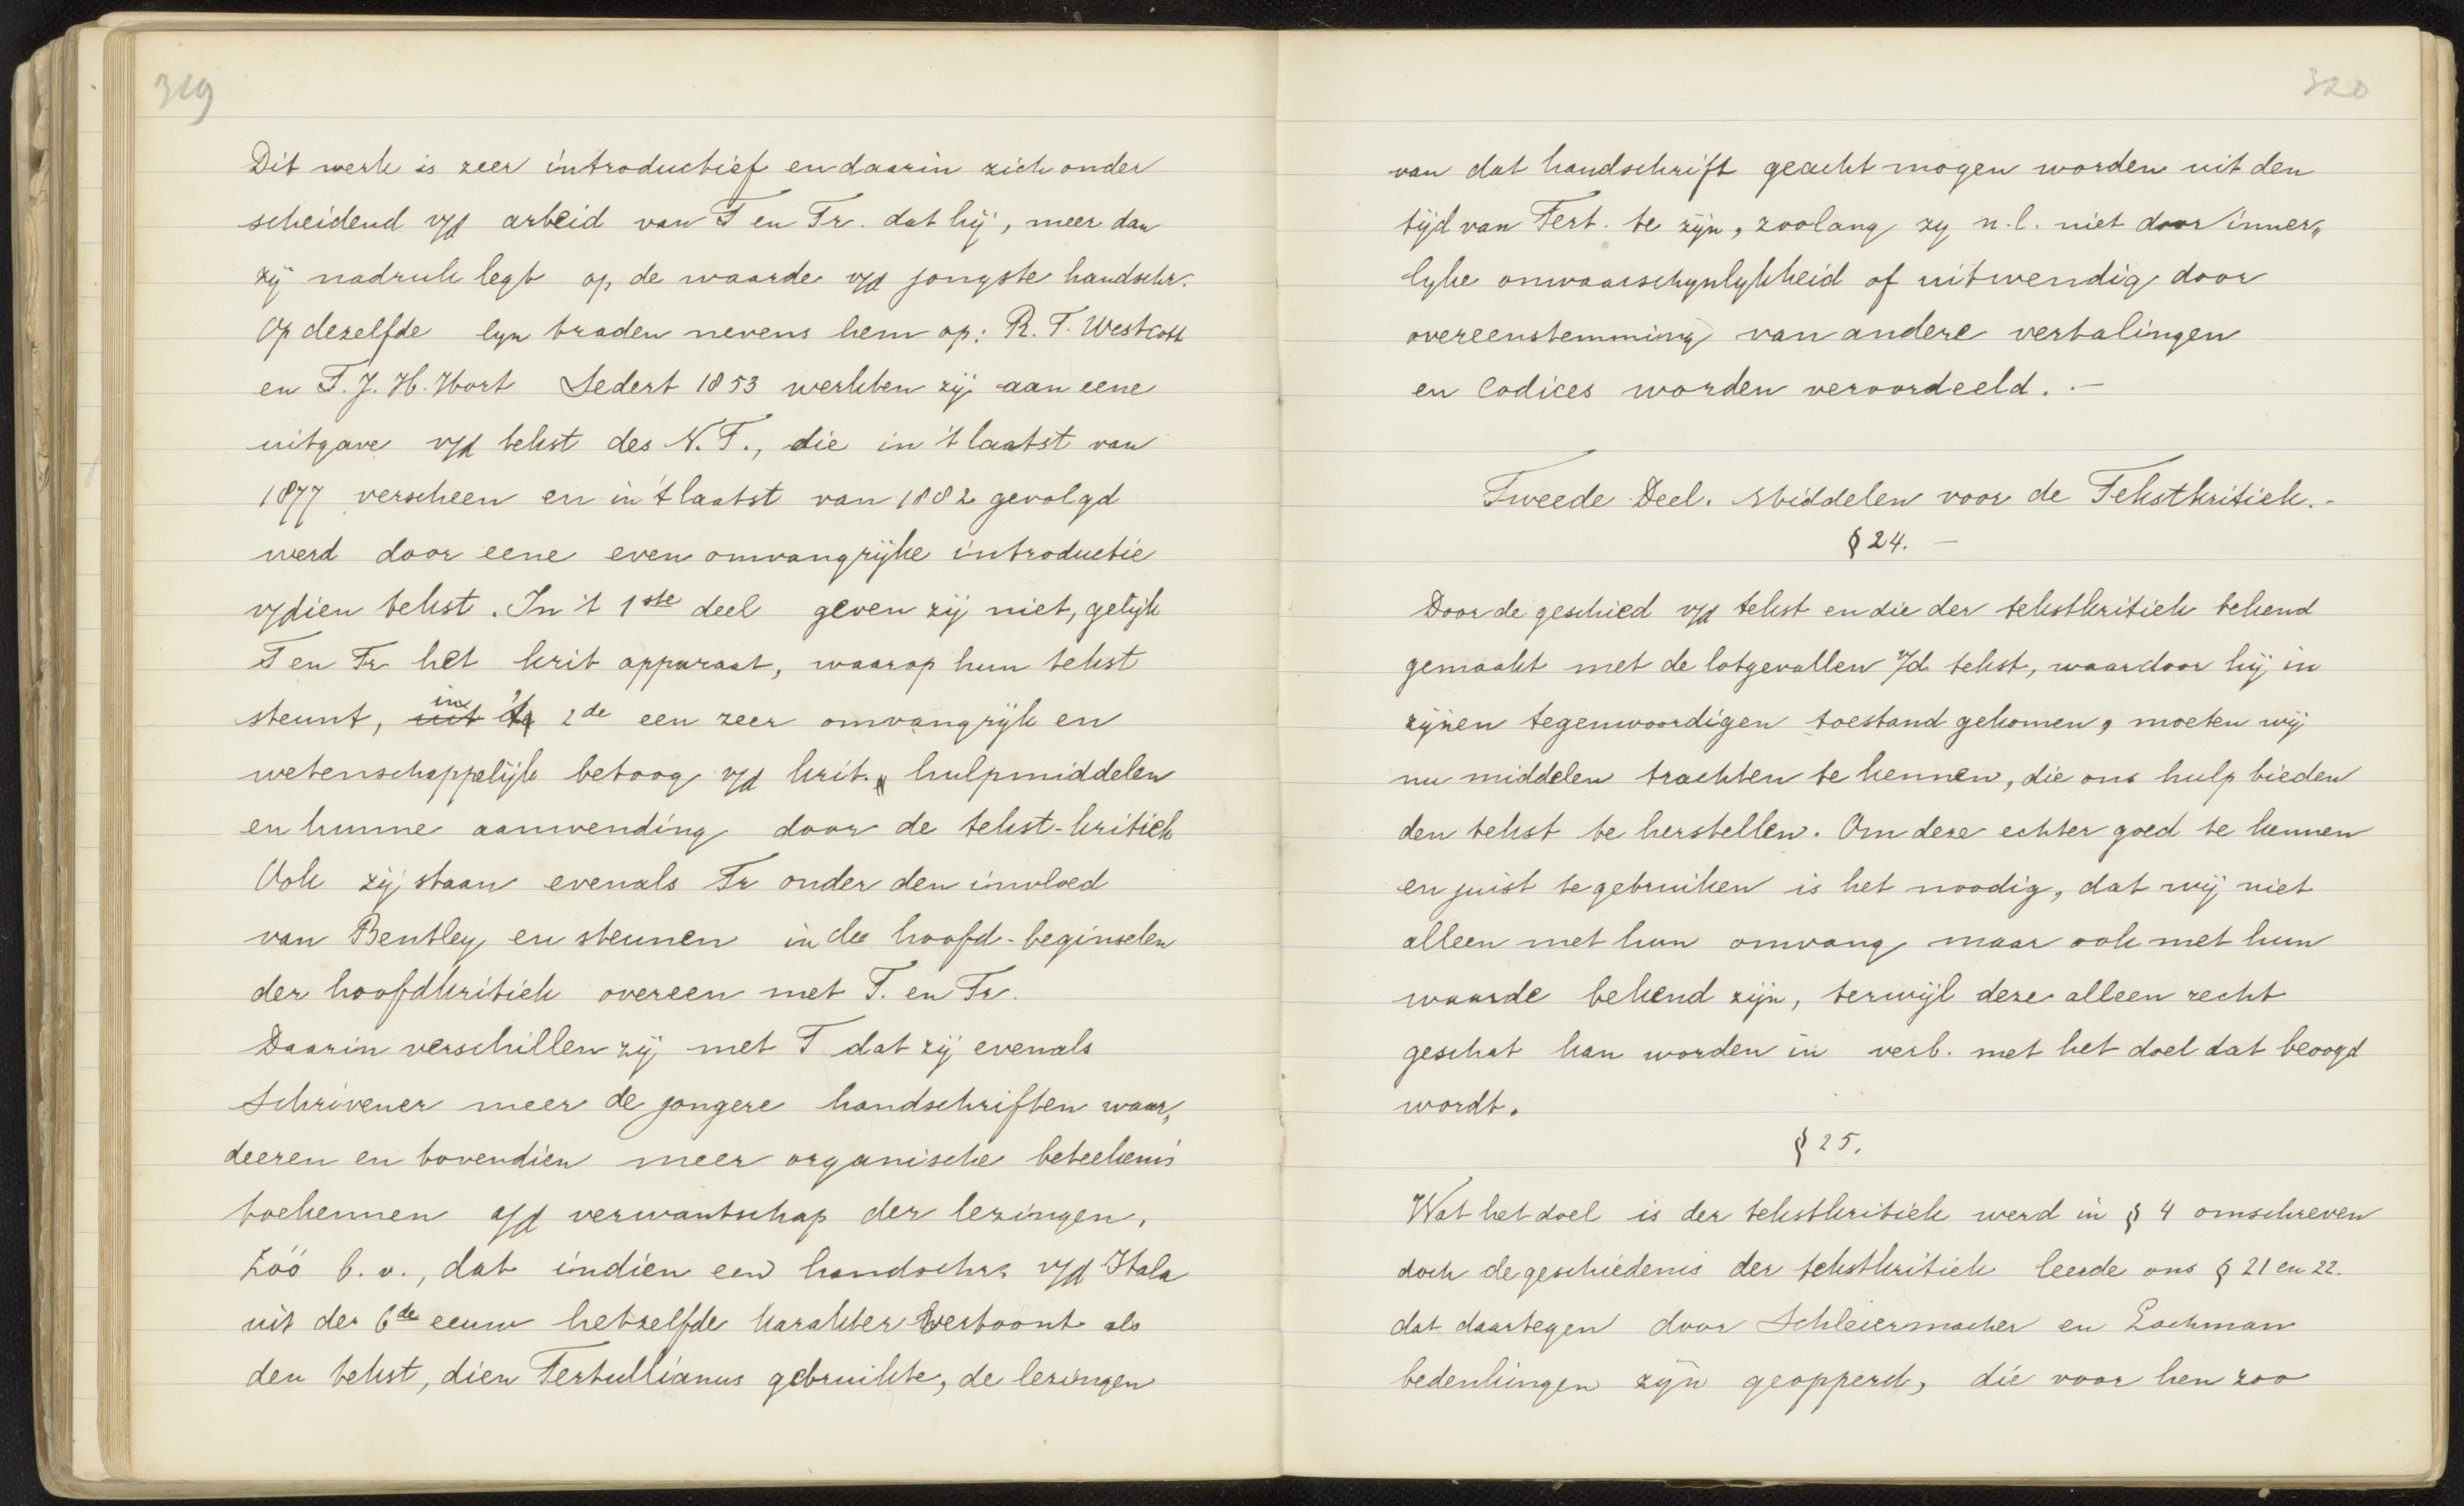 319
Dit werk is zeer introductief en daarin zich onder
scheidend v/d arbeid van T en Tr. dat hij, meer dan
zij nadruk legt op de waarde v/d jongste handschr.
Op dezelfde lyn traden nevens hem op: R. T. Westcott
en F. J. H. Hort Sedert 1853 werkten zij aan eene
uitgave v/d tekst des N. T., die in 't laatst van
1877 verscheen en in 't laatst van 1882 gevolgd
werd door eene even omvangrijke introductie
v/dien tekst. In 't 1ste deel geven zij niet, gelijk
T en Tr het krit apparaat, waarop hun tekst
steunt, in 't 2de een zeer omvangrijk en
wetenschappelijk betoog v/d krit. hulpmiddelen
en hunne aanwending door de tekst-kritiek
Ook zij staan evenals Tr onder den invloed
van Bentley en steunen in de hoofd-beginselen
der hoofdkritiek overeen met T. en Tr.
Daarin verschillen zij met T dat zij evenals
Schrivener meer de jongere handschriften waar„
deeren en bovendien meer organische beteekenis
toekennen a/d verwantschap der lezingen.
Zóó b. v., dat indien een handschr. v/d Itala
uit de 6de eeuw hetzelfde karakter vertoont als
den tekst, dien Tertullianus gebruikte, de lezingen
320
van dat handschrift geacht mogen worden uit den
tijd van Tert. te zijn, zoolang zy n.l. niet door inner„
lyke onwaarschynlykheid of uitwendig door
overeenstemming van andere vertalingen
en Codices worden veroordeeld. .—
Tweede Deel. Middelen voor de Tekstkritiek.-
§ 24. —
Door de geschied v/d tekst en die der tekstkritiek bekend
gemaakt met de lotgevallen v/d tekst, waardoor hij in
zijnen tegenwoordigen toestand gekomen, moeten wij
nu middelen trachten te kennen, die ons hulp bieden
den tekst te herstellen. Om deze echter goed te kennen
en juist te gebruiken is het noodig, dat wij niet
alleen met hun omvang maar ook met hun
waarde bekend zijn, terwijl deze alleen recht
geschat kan worden in verb. met het doel dat beoogd
wordt.
§ 25.
Wat het doel is der tekstkritiek werd in § 4 omschreven
doch de geschiedenis der tekstkritiek leerde ons § 21 en 22.
dat daartegen door Schleiermacher en Lachman
bedenkingen zyn geopperd, die voor hen zoo